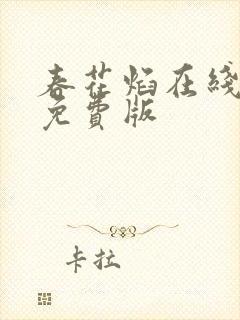 春花焰在綫
免費版
卡拉